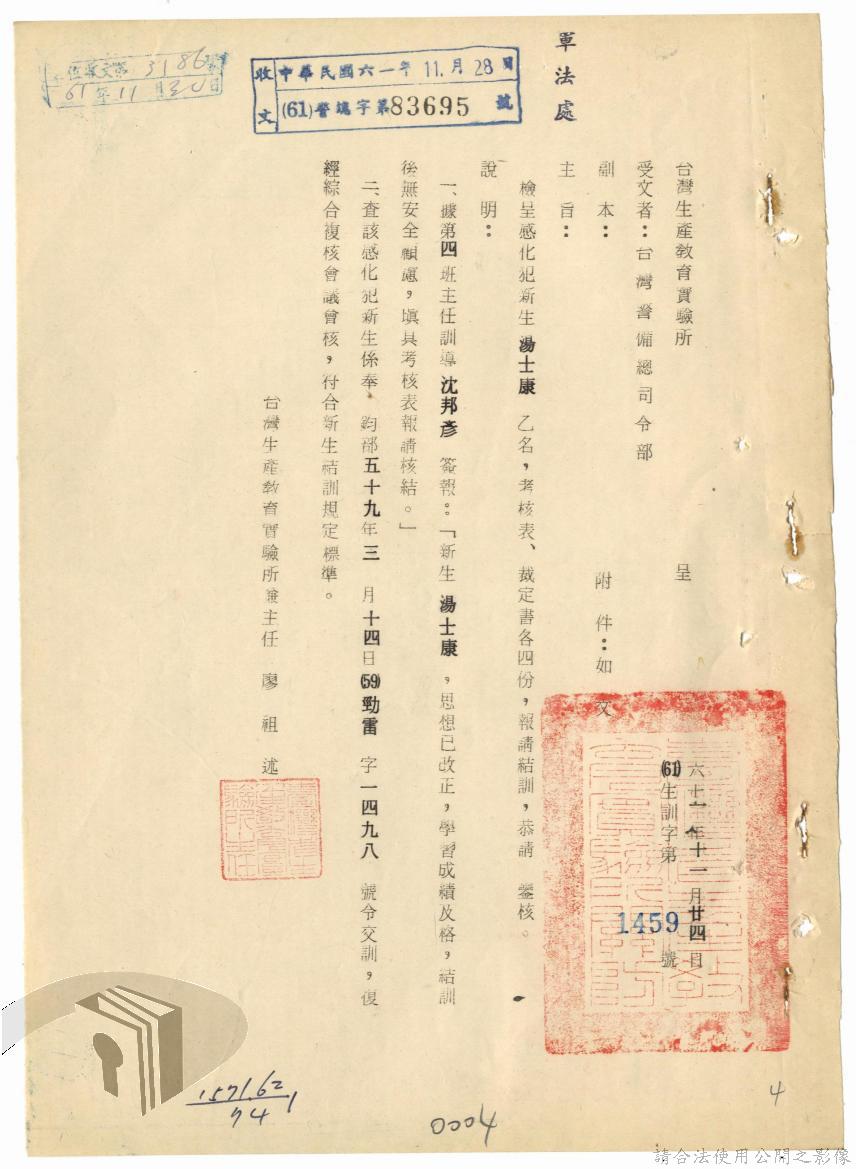 軍法處
收文
中華民國六一年11.月28日
(61)警總字第83695號
3186
61年11月30日
台灣生產教育實驗所 呈
六十一年十一月廿四日
(61)生訓字第1459號
受文者：台灣警備總司令部
副本：
附件：如文
主旨：
檢呈感化犯新生湯士康乙名，考核表、裁定書各四份，報請結訓，恭請 鑒核。
說明：
一、據第四班主任訓導沈邦彥簽報：「新生湯士康，思想已改正，學習成績及格，結訓
後無安全顧慮，填具考核表報請核結。」
二、查該感化犯新生係奉 鈞部五十九年三月十四日(59)勁雷字一四九八號令交訓，復
經綜合複核會議會核，符合新生結訓規定標準。
台灣生產教育實驗所兼主任 廖祖述
1571.62
741
0004
4
請合法使用公開之影像